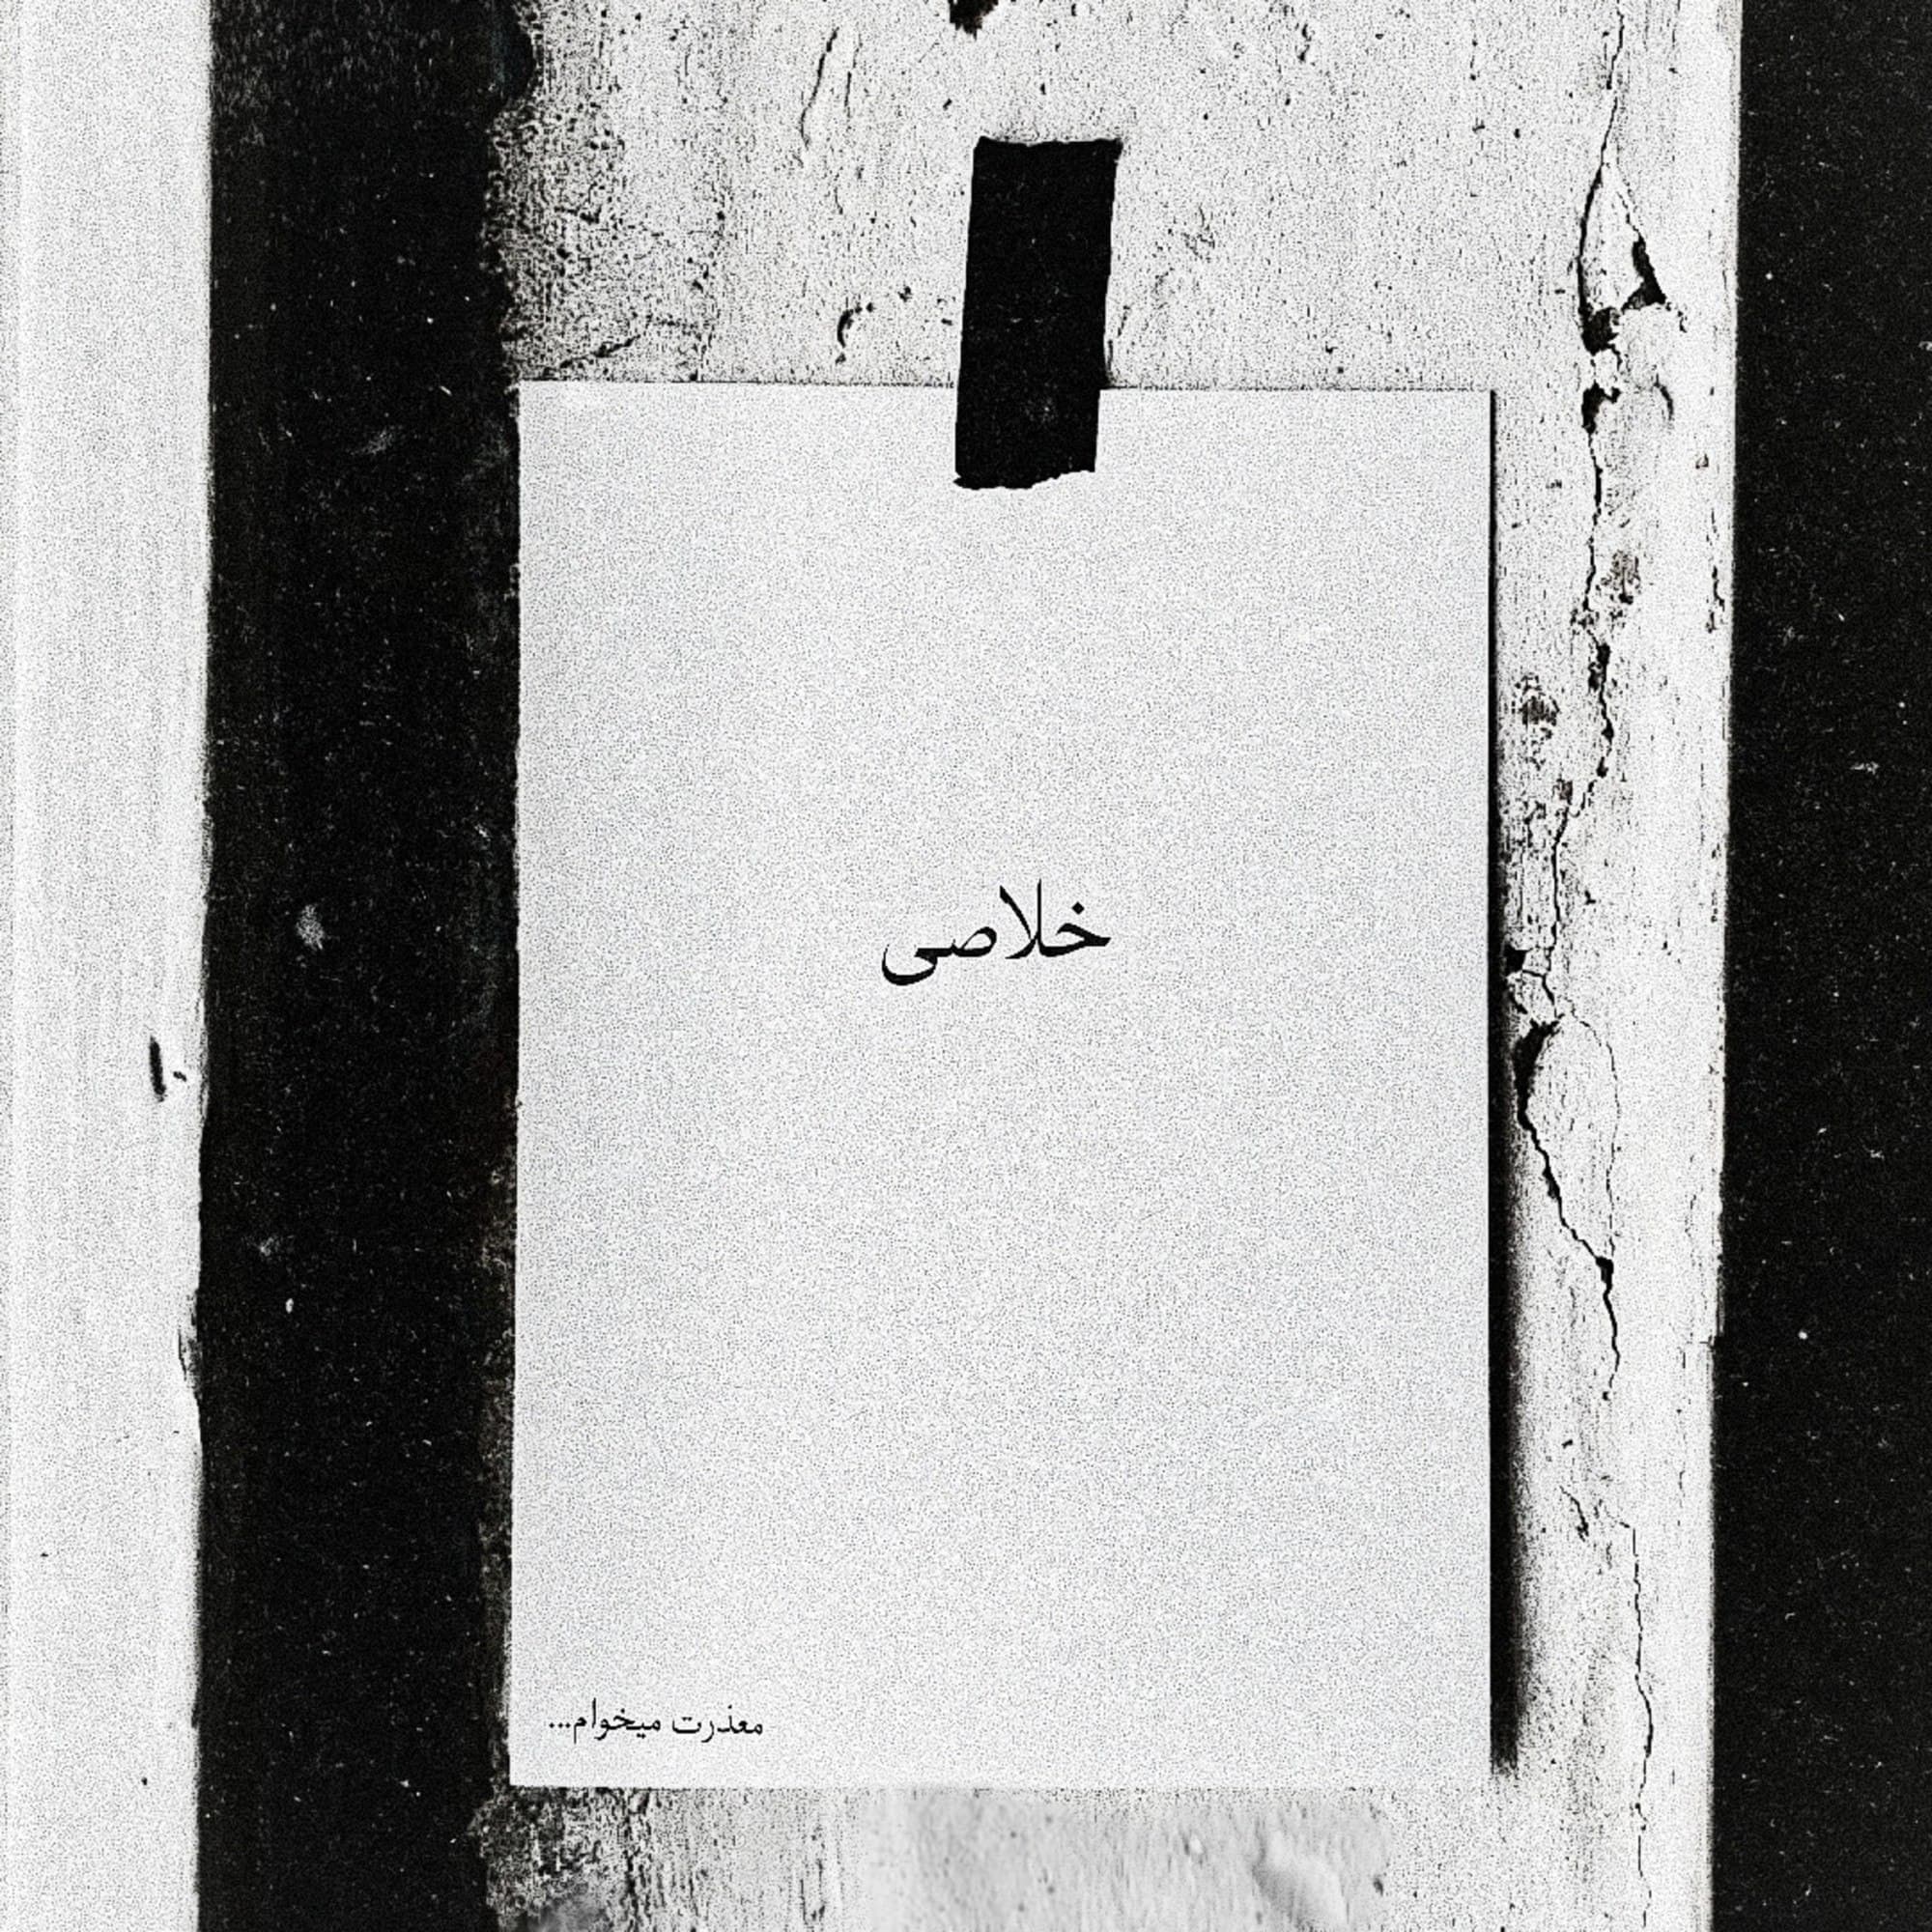 خلاصی
معذرت میخوام...